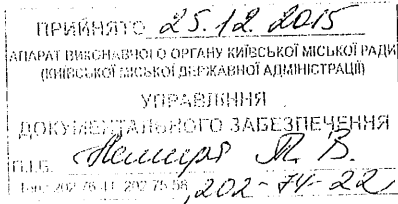 ПРИЙНЯТО 25.12.2015
АПАРАТ ВИКОНАВЧОГО ОРГАНУ КИЇВСЬКОЇ МІСЬКОЇ РАДИ
(КИЇВСЬКОЇ МІСЬКОЇ ДЕРЖАВНОЇ АДМІНІСТРАЦІЇ)
УПРАВЛІННЯ
ДОКУМЕНТАЛЬНОГО ЗАБЕЗПЕЧЕННЯ
П.І.Б. Т. В.
Тел.: 202-76-41, 202-75-58, 202-74-22